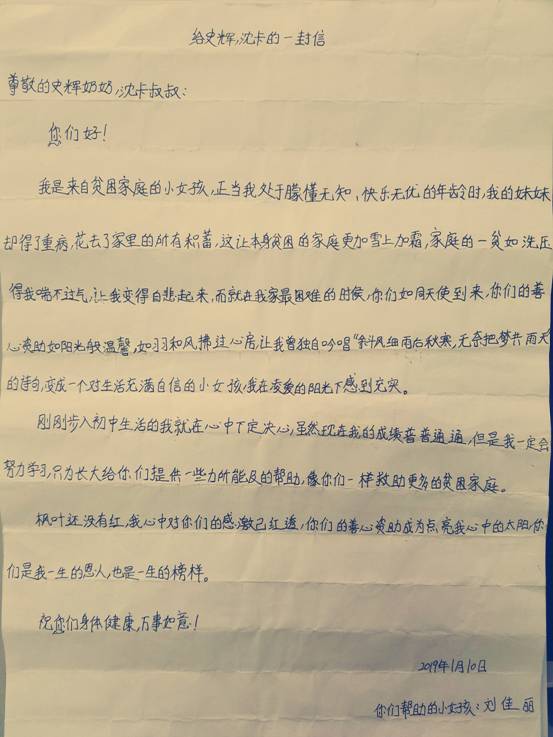 给史辉,沈卡的一封信
尊敬的史辉奶奶,沈卡叔叔:
您们好!
我是来自贫困家庭的小女孩,正当我处于朦懂无知、快乐无忧的年龄时,我的妹妹
却得了重病,花去了家里的所有积蓄,这让本身贫困的家庭更加雪上加霜,家庭的一贫如洗压
得我喘不过气,让我变得自悲起来,而就在我家最困难的时候,你们如同天使到来,你们的善
心资助如阳光般温馨,如羽和风拂过心房,让我曾独自吟唱“斜风细雨后秋寒,无奈把梦共雨天
的诗句,变成一个对生活充满自信的小女孩,我在凌爱的阳光下感到充实。
刚刚步入初中生活的我就在心中下定决心,虽然现在我的成绩普普通通,但是我一定会
努力学习,只为长大给你们提供一些力所能及的帮助,像你们一样救助更多的贫困家庭。
枫叶还没有红,我心中对你们的感激已红透,你们的善心资助成为点亮我心中的太阳,你
们是我一生的恩人,也是一生的榜样。
祝您们身体健康,万事如意!
2019年1月10日
你们帮助的小女孩:刘佳丽